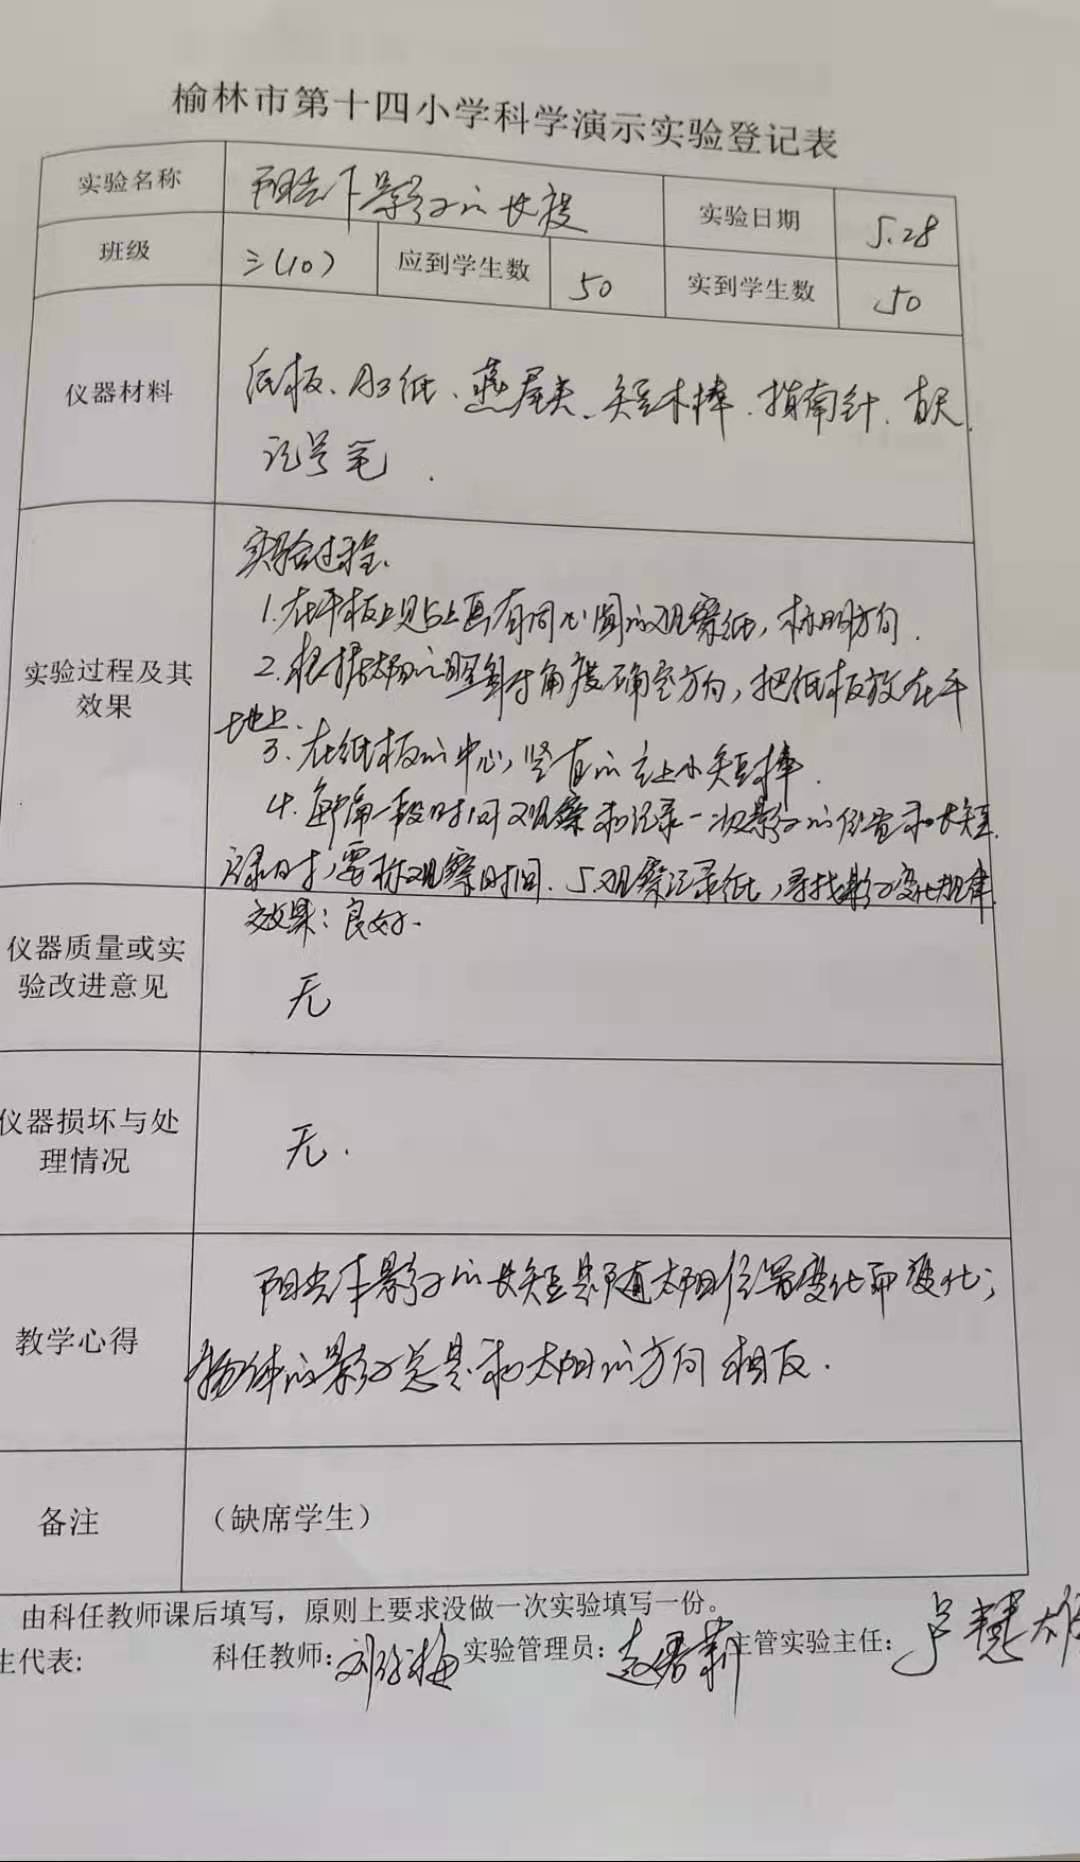 榆林市第十四小学科学演示实验登记表
实验名称 阳光下影子的长度 实验日期 5.28
班级 三(10) 应到学生数 50 实到学生数 50
仪器材料 纸板、A3纸、燕尾夹、短木棒、指南针、直尺、
记号笔.
实验过程.
1.在平板上贴上画有同心圆的观察纸,标明方向.
2.根据太阳的照射角度确定方向,把纸板放在平
实验过程及其
效果
地上.
3.在纸板的中心,竖直的立上小短棒.
4.每隔一段时间观察和记录一次影子的位置和长短.
录时,要标观察时间.5.观察记录纸,寻找影子变化规律.
效果:良好.
仪器质量或实
验改进意见
无
仪器损坏与处
理情况
无.
阳光下影子的长短是随太阳位置变化而变化;
教学心得
物体的影子总是和太阳的方向相反.
备注 (缺席学生)
由科任教师课后填写，原则上要求没做一次实验填写一份。
生代表: 科任教师: 实验管理员: 主管实验主任: